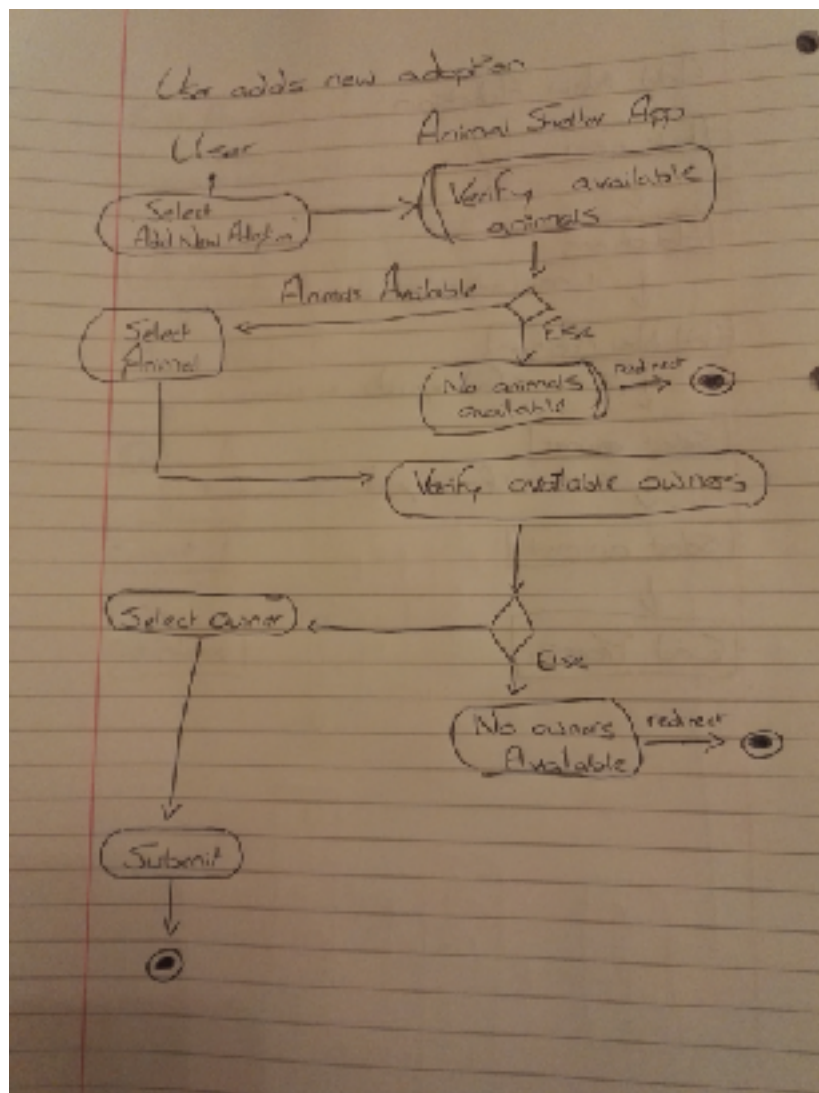 User adds new adoption
User
Animal Shelter App
Select
Add New Adoption
Verify available
animals
Animals Available
Select
Animal
Else
No animals
available
redirect
Verify available owners
Select owner
Else
No owners
Available
redirect
Submit